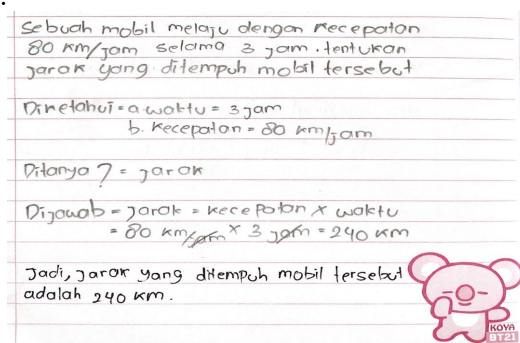 Sebuah mobil melaju dengan kecepatan
80 km/jam selama 3 jam. tentukan
jarak yang ditempuh mobil tersebut
Diketahui = a. waktu = 3 jam
b. kecepatan = 80 km/jam
Ditanya ? = jarak
Dijawab = jarak = kecepatan x waktu
= 80 km/jam x 3 jam = 240 km
Jadi, jarak yang ditempuh mobil tersebut
adalah 240 km.
KOYA
BT21